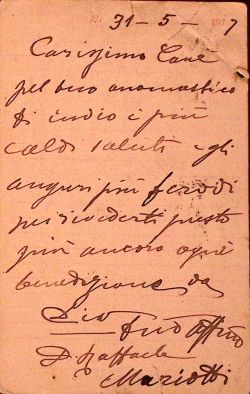 31-5-7
Carissimo
pel tuo onomastico
ti invio i più
caldi saluti e gli
auguri più
per rivederti presto
più ancora ogni
benedizione da
Zio tuo Aff.mo
D. Raffaele
Mariotti